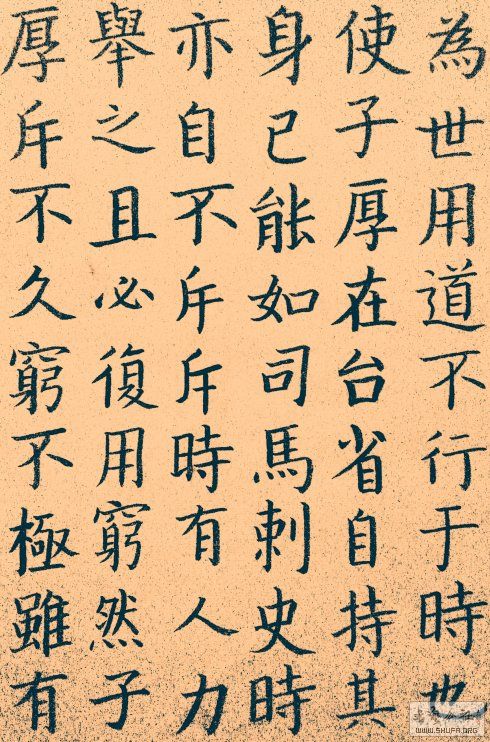 為世用道不行于時也
使子厚在台省自持其
身已能如司馬刺史時
亦自不斥斥時有人力
舉之且必復用窮然子
厚斥不久窮不極雖有
WWW.SHUFA.ORG